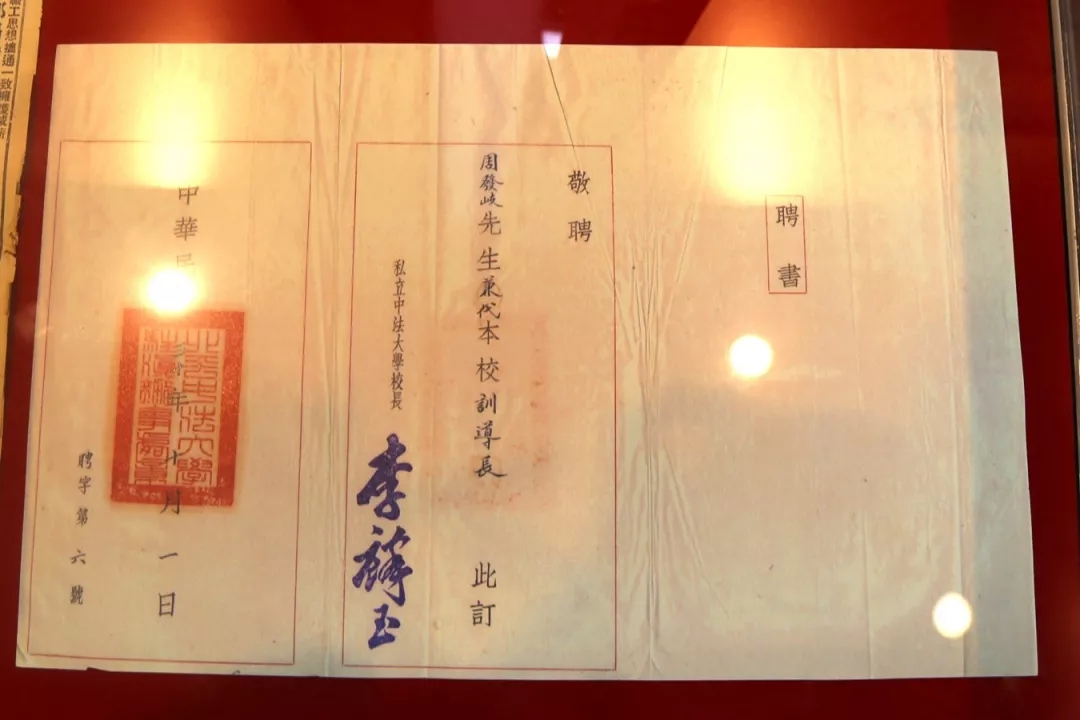 聘書
敬聘
周發岐先生兼代本校訓導長 此訂
私立中法大學校長
李麟玉
中華民
年十月一日
聘字第六號
工思想搞通一致擁護